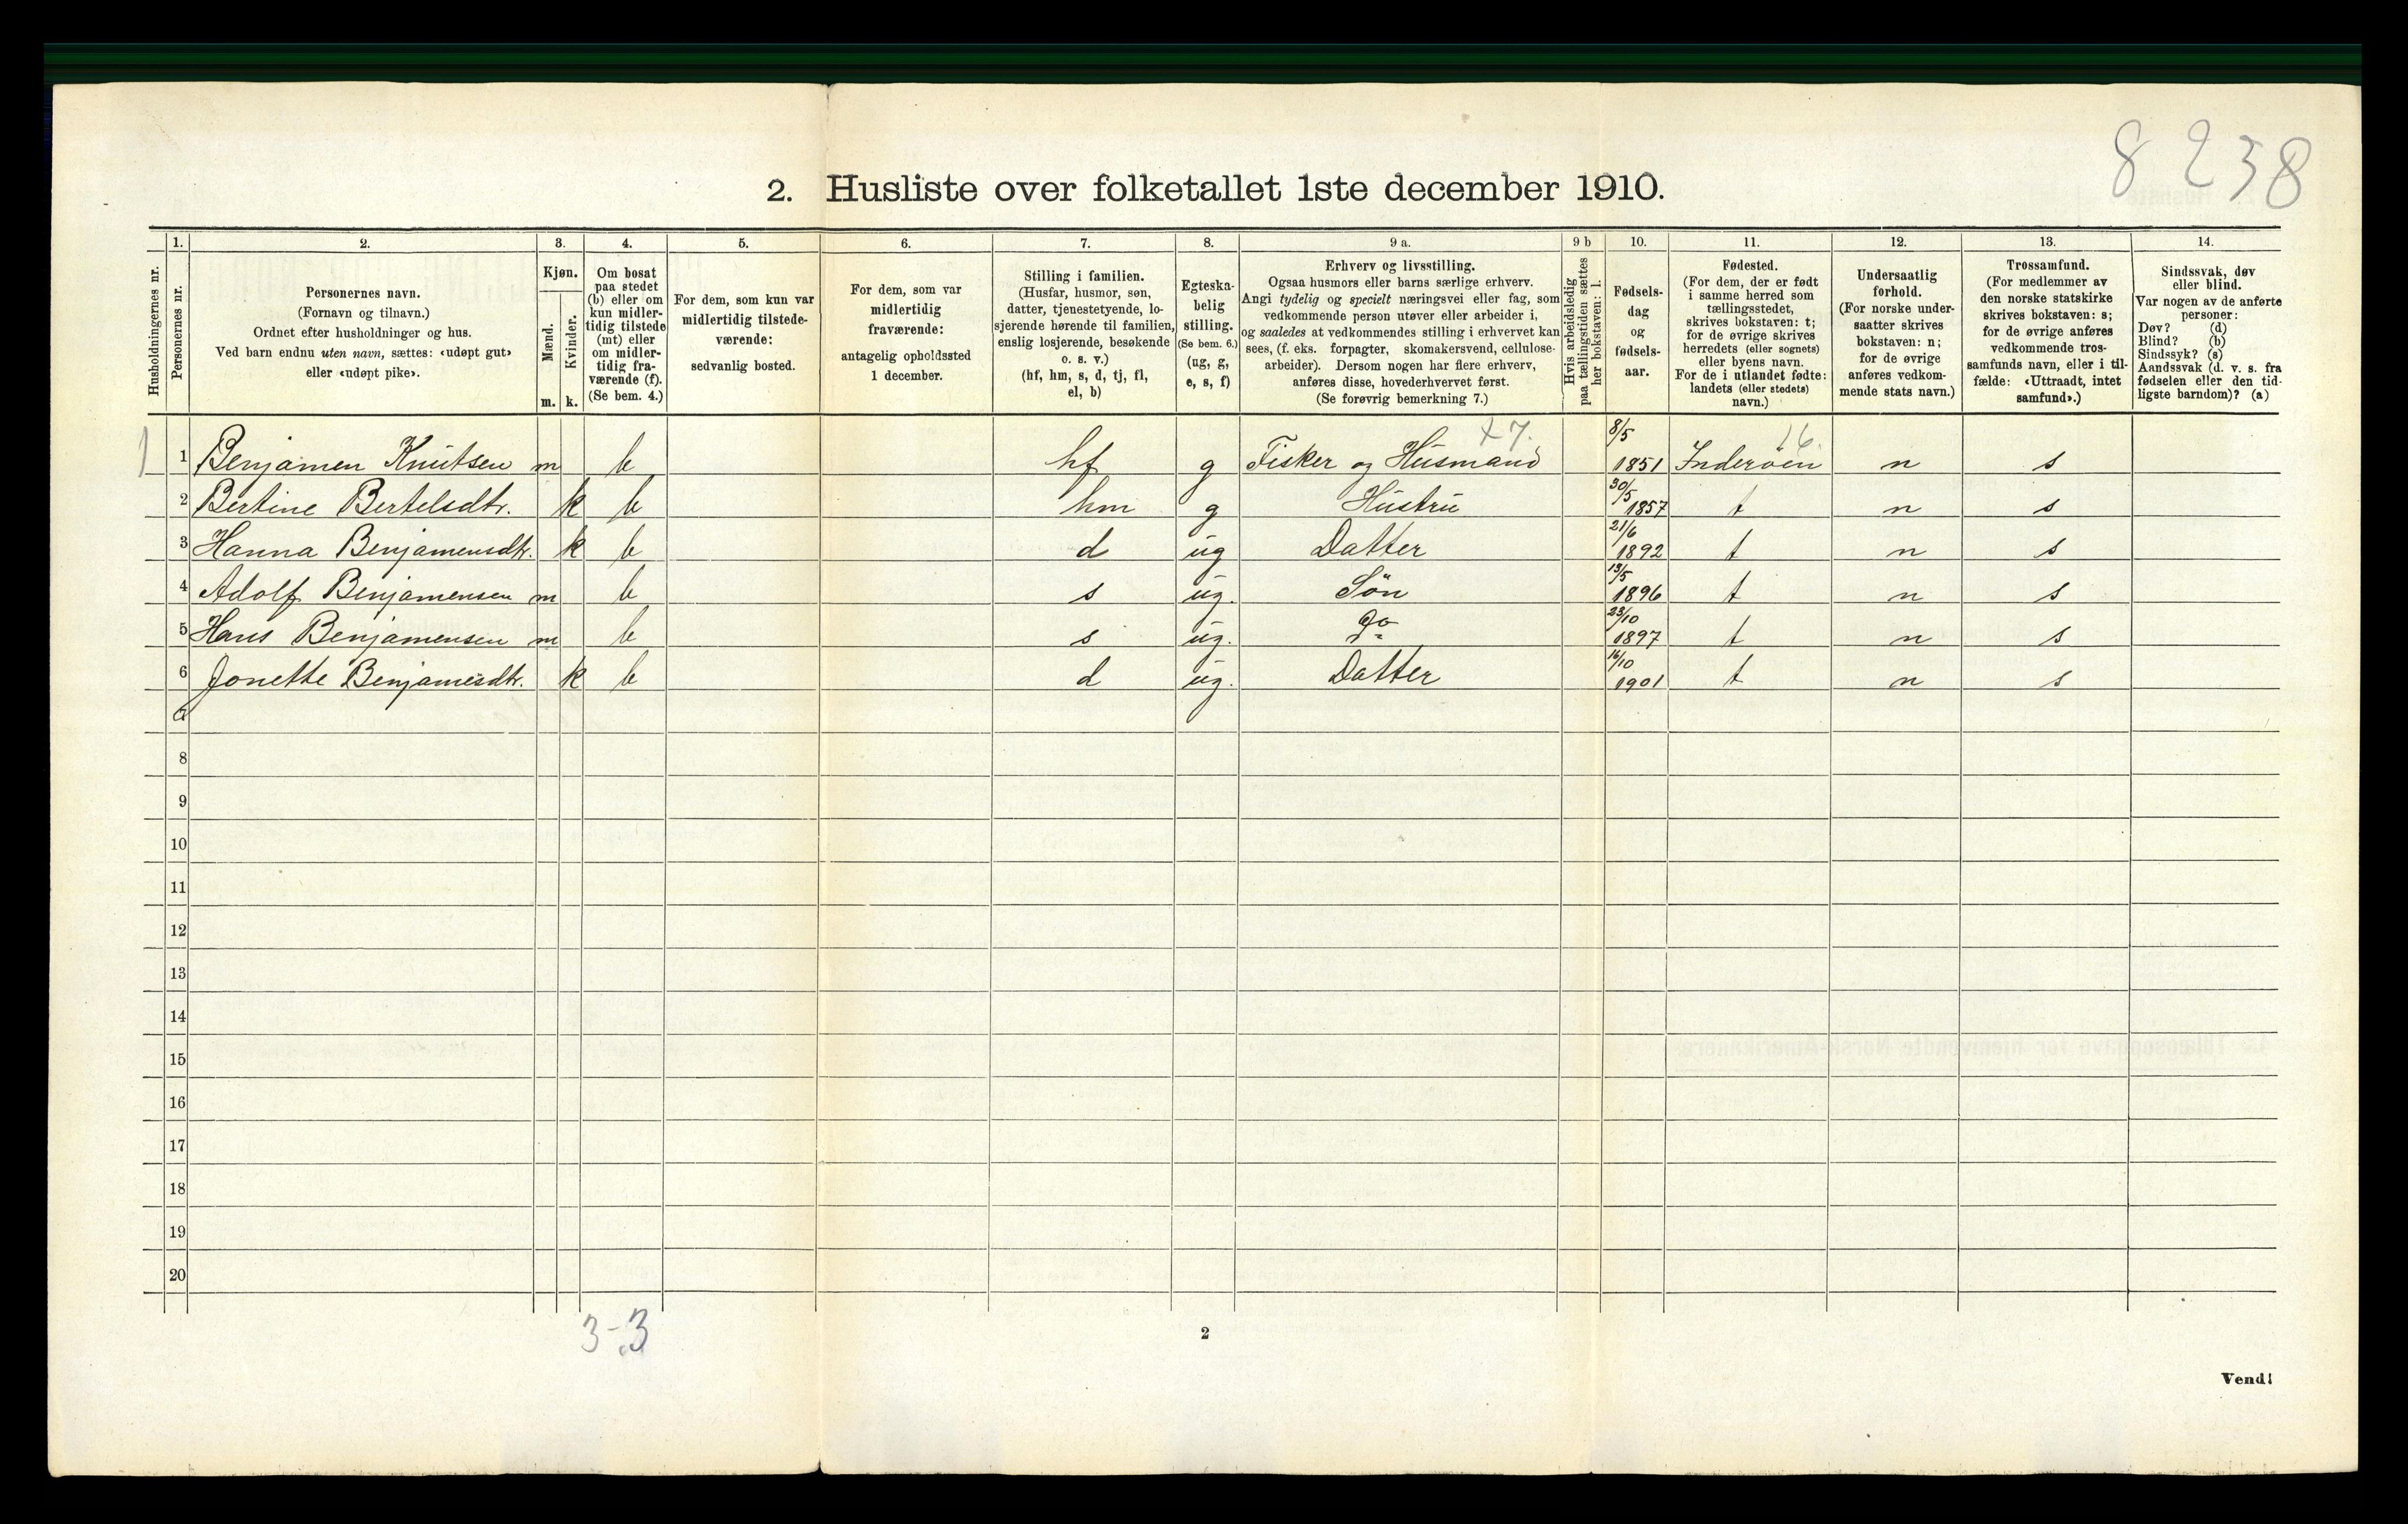 8 238
2. Husliste over folketallet 1ste december 1910.
1. 2. 3. 4. 5. 6. 7. 8. 9 a. 9 b 10. 11. 12. 13. 14.
Husholdningernes nr.
Personernes nr.
Personernes navn.
(Fornavn og tilnavn.)
Ordnet efter husholdninger og hus.
Ved barn endnu uten navn, sættes: «udøpt gut»
eller «udøpt pike».
Kjøn.
Mænd.
Kvinder.
m. k.
Om bosat
paa stedet
(b) eller om
kun midler-
tidig tilstede
(mt) eller
om midler-
tidig fra-
værende (f).
(Se bem. 4.)
For dem, som kun var
midlertidig tilstede-
værende:
sedvanlig bosted.
For dem, som var
midlertidig
fraværende:
antagelig opholdssted
1 december.
Stilling i familien.
(Husfar, husmor, søn,
datter, tjenestetyende, lo-
sjerende hørende til familien,
enslig losjerende, besøkende
o. s. v.)
(hf, hm, s, d, tj, fl,
el, b)
Egteska-
belig
stilling.
(Se bem. 6.)
(ug, g,
e, s, f)
Erhverv og livsstilling.
Ogsaa husmors eller barns særlige erhverv.
Angi tydelig og specielt næringsvei eller fag, som
vedkommende person utøver eller arbeider i,
og saaledes at vedkommendes stilling i erhvervet kan
sees, (f. eks. forpagter, skomakersvend, cellulose-
arbeider). Dersom nogen har flere erhverv,
anføres disse, hovederhvervet først.
(Se forøvrig bemerkning 7.)
Hvis arbeidsledig
paa tællingstiden sættes
her bokstaven: l.
Fødsels-
dag
og
fødsels-
aar.
Fødested.
(For dem, der er født
i samme herred som
tællingsstedet,
skrives bokstaven: t;
for de øvrige skrives
herredets (eller sognets)
eller byens navn.
For de i utlandet fødte:
landets (eller stedets)
navn.)
Undersaatlig
forhold.
(For norske under-
saatter skrives
bokstaven: n;
for de øvrige
anføres vedkom-
mende stats navn.)
Trossamfund.
(For medlemmer av
den norske statskirke
skrives bokstaven: s;
for de øvrige anføres
vedkommende tros-
samfunds navn, eller i til-
fælde: «Uttraadt, intet
samfund».)
Sindssvak, døv
eller blind.
Var nogen av de anførte
personer:
Døv? (d)
Blind? (b)
Sindssyk? (s)
Aandssvak (d. v. s. fra
fødselen eller den tid-
ligste barndom)? (a)
1 1 Benjamen Knutsen m b hf g Fisker og Husmand 8/5 1851 Inderöen 16. n s
2 Bertine Bertelsdtr. k b hm g Hustru 30/5 1857 t n s
3 Hanna Benjamensdtr. k b d ug Datter 21/6 1892 t n s
4 Adolf Benjamensen m b s ug. Sön 13/5 1896 t n s
5 Hans Benjamensen m b s ug. Do 23/10 1897 t n s
6 Jonette Benjamesdtr. k b d ug. Datter 16/10 1901 t n s
7
8
9
10
11
12
13
14
15
16
17
18
19
20
3-3
2
Vend!